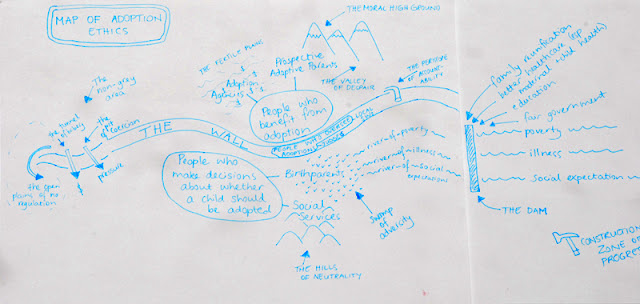 MAP OF ADOPTION
ETHICS
THE MORAL HIGH GROUND
THE FERTILE PLAINS
Prospective
Adoptive Parents
Adoption
Agencies
THE VALLEY OF DESPAIR
THE PERISCOPE
OF ACCOUNT-
ABILITY
People who
benefit from
adoption
The
non-gray
area
the tunnel
of bribery
the pit
of coercion
pressure
$
the open
plains of no
regulation
THE WALL
PEOPLE WHO
ADOPTION
People who
make decisions
about whether
a child should
be adopted
Birthparents
Social
Services
river-of-poverty
river-of-illness
river-of-social
expectations
Swamp
of
adversity
THE HILLS
OF NEUTRALITY
family reunification
better healthcare (esp
maternal + child health)
education
fair government
poverty
illness
social expectation
THE DAM
CONSTRUCTION
ZONE OF
PROGRES